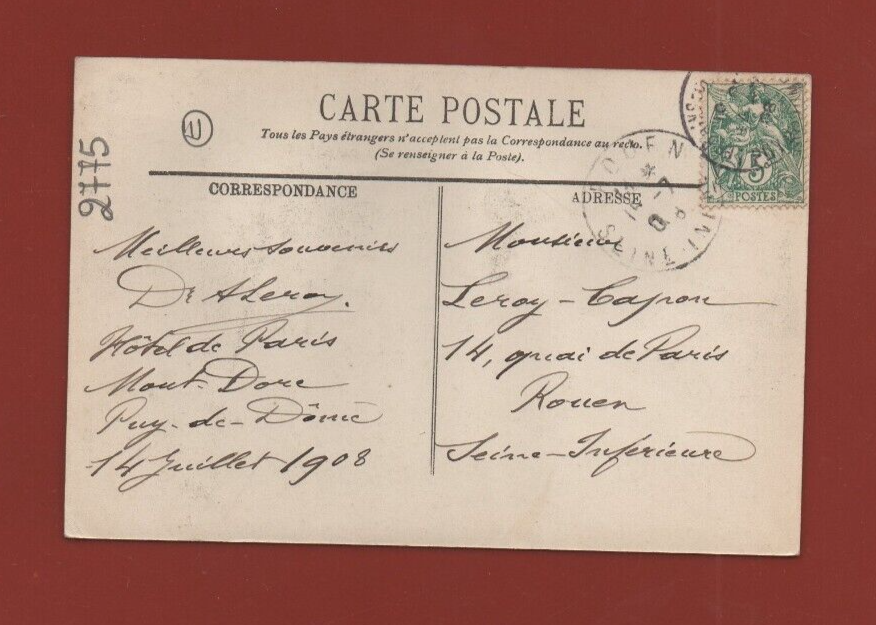 CARTE POSTALE
Tous les Pays étrangers n'acceptent pas la Correspondance au recto.
(Se renseigner à la Poste).
U
2775
CORRESPONDANCE
Meilleurs souvenirs
Dr A Leroy.
Hôtel de Paris
Mont-Dore
Puy-de-Dôme
14 Juillet 1908
ADRESSE
Monsieur
Leroy-Capon
14, quai de Paris
Rouen
Seine-Inférieure
5
POSTES
ROUEN
SEINE INF